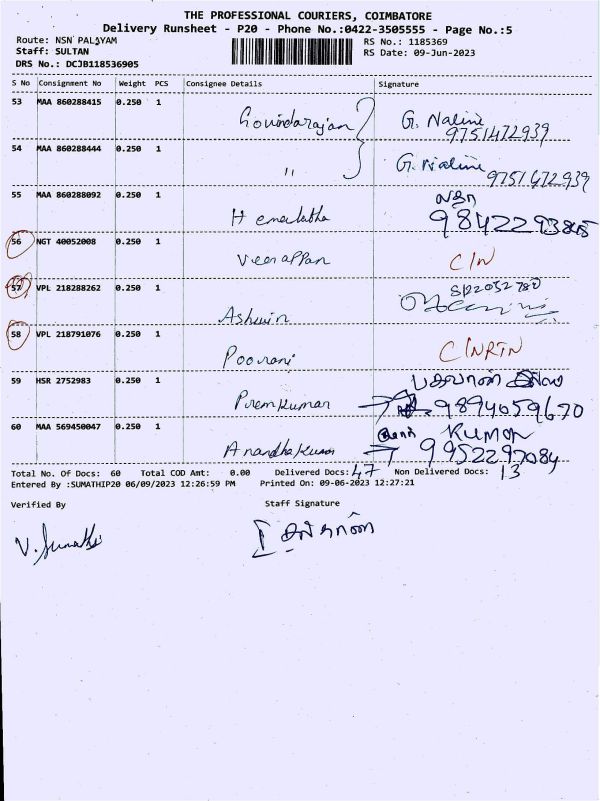 THE PROFESSIONAL COURIERS, COIMBATORE
Delivery Runsheet - P20 - Phone No.:0422-3505555 - Page No.:5
Route: NSN PALAYAM RS No.: 1185369
Staff: SULTAN RS Date: 09-Jun-2023
DRS No.: DCJB118536905
S No Consignment No Weight PCS Consignee Details Signature
53 MAA 860288415 0.250 1 Govindarajan G. Nalini
9751472939
54 MAA 860288444 0.250 1 " G. Nalini
9751472939
55 MAA 860288092 0.250 1 Hemalatha
56 NGT 40052008 0.250 1 Veerappan C/N
57 VPL 218288262 0.250 1 Ashwin
58 VPL 218791076 0.250 1 Poorani C/NRTN
59 HSR 2752983 0.250 1 Premkumar 9894059670
60 MAA 569450047 0.250 1 Anandhakumar KUMAR
9952297084
Total No. Of Docs: 60 Total COD Amt: 0.00 Delivered Docs: 47 Non Delivered Docs: 13
Entered By :SUMATHIP20 06/09/2023 12:26:59 PM Printed On: 09-06-2023 12:27:21
Verified By Staff Signature
V. Sumathi